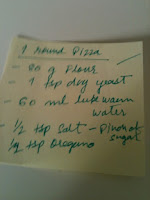 1 round Pizza
- 80 g flour
- 1 tsp dry yeast
- 60 ml luke warm
water
- 1/2 tsp salt - Pinch of
sugar
1/4 tsp Oregano